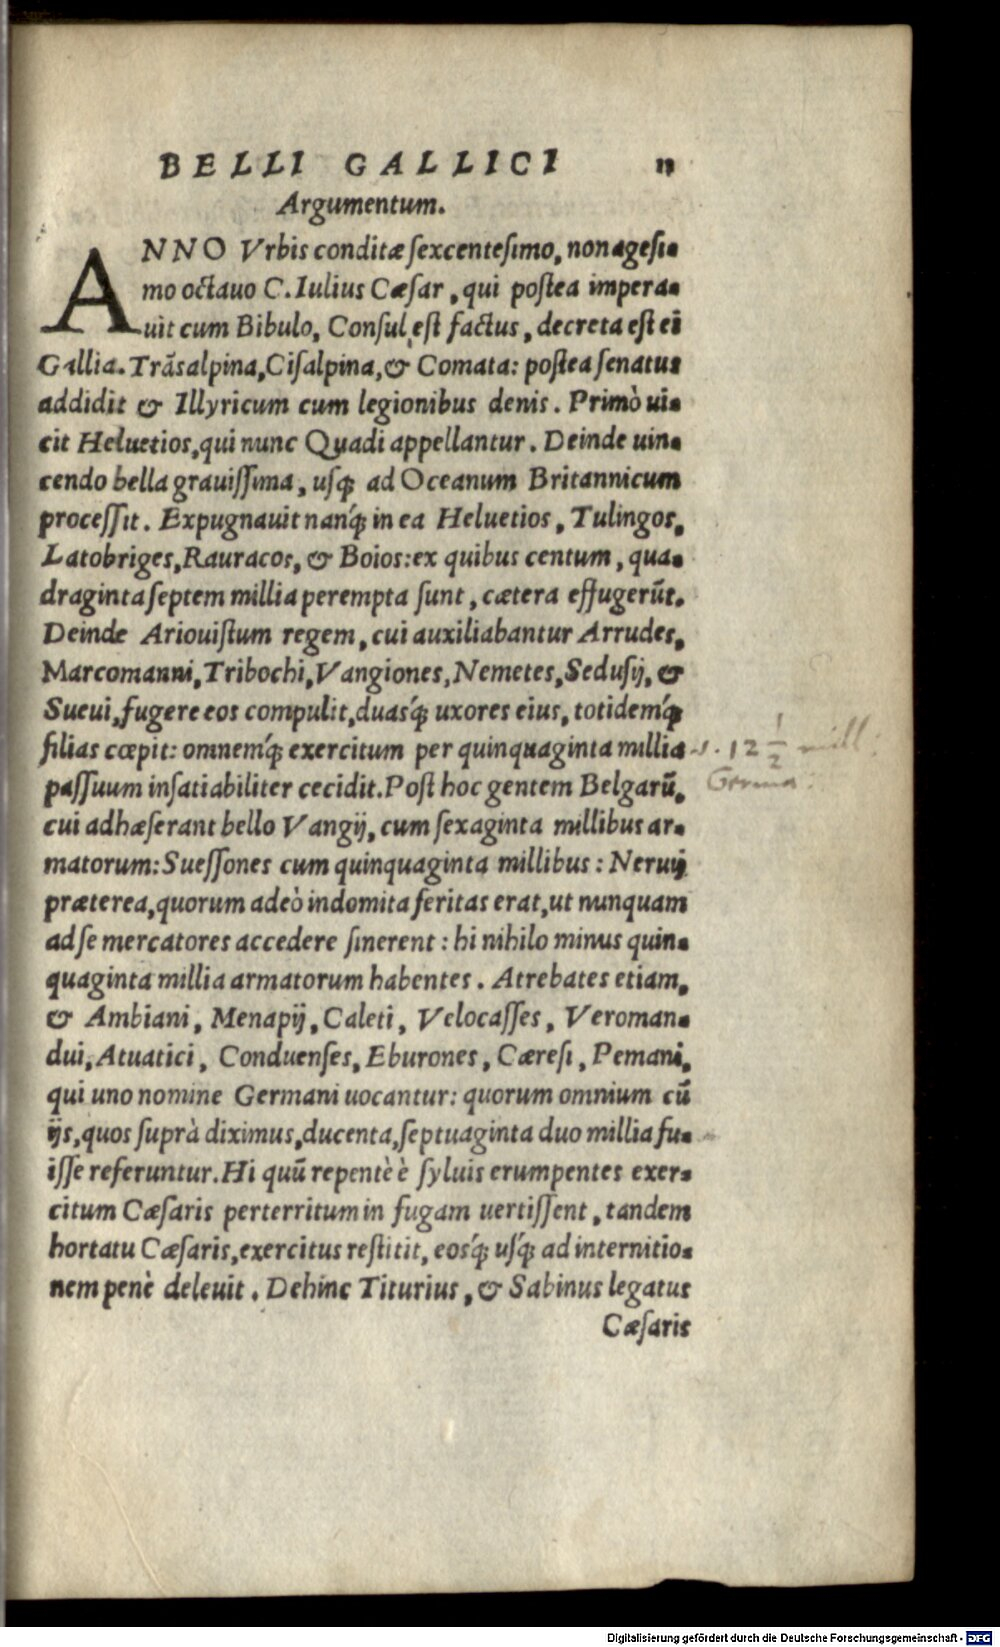 BELLI GALLICI 11
Argumentum.
ANNO Vrbis conditæ sexcentesimo, nonagesi-
mo octauo C. Iulius Cæsar, qui postea impera-
uit cum Bibulo, Consul est factus, decreta est ei
Gallia. Trãsalpina, Cisalpina, & Comata: postea senatus
addidit & Illyricum cum legionibus denis. Primò ui-
cit Heluetios, qui nunc Quadi appellantur. Deinde uin-
cendo bella grauissima, usq́; ad Oceanum Britannicum
processit. Expugnauit nanq́; in ea Heluetios, Tulingos,
Latobriges, Rauracos, & Boios: ex quibus centum, qua-
draginta septem millia perempta sunt, cætera effugerũt.
Deinde Ariouistum regem, cui auxiliabantur Arrudes,
Marcomanni, Tribochi, Vangiones, Nemetes, Sedusij, &
Sueui, fugere eos compulit, duasq́; uxores eius, totidemq́;
filias cœpit: omnemq́; exercitum per quinquaginta millia
passuum insatiabiliter cecidit. Post hoc gentem Belgarũ,
cui adhæserant bello Vangij, cum sexaginta millibus ar-
matorum: Suessones cum quinquaginta millibus: Neruij
præterea, quorum adeò indomita feritas erat, ut nunquam
ad se mercatores accedere sinerent: hi nihilo minus quin-
quaginta millia armatorum habentes. Atrebates etiam,
& Ambiani, Menapij, Caleti, Velocasses, Veroman-
dui, Atuatici, Conduenses, Eburones, Cæresi, Pemani,
qui uno nomine Germani uocantur: quorum omnium cũ
ijs, quos suprà diximus, ducenta, septuaginta duo millia fu-
isse referuntur. Hi quũ repentè è syluis erumpentes exer-
citum Cæsaris perterritum in fugam uertissent, tandem
hortatu Cæsaris, exercitus restitit, eosq́; usq́; ad internitio-
nem penè deleuit. Dehinc Titurius, & Sabinus legatus
Cæsaris
12 1/2 mill:
Germa:
Digitalisierung gefördert durch die Deutsche Forschungsgemeinschaft - DFG